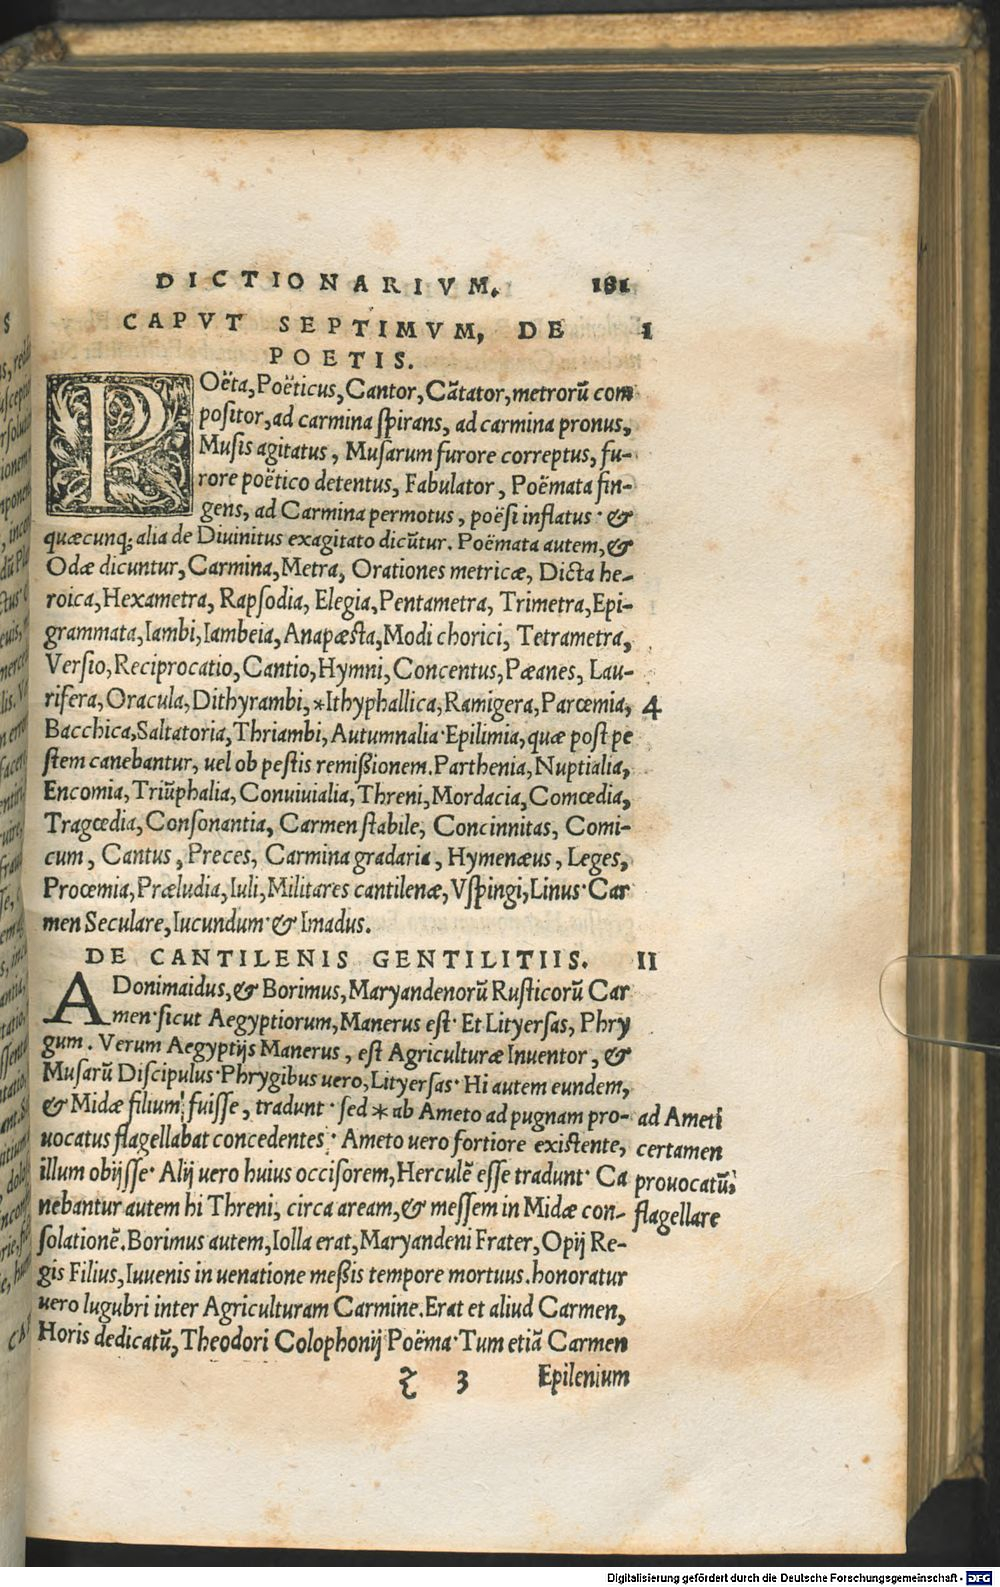 DICTIONARIVM. 181
CAPVT SEPTIMVM, DE 1
POETIS.
POëta, Poëticus, Cantor, Cãtator, metrorũ com
positor, ad carmina spirans, ad carmina pronus,
Musis agitatus, Musarum furore correptus, fu-
rore poëtico detentus, Fabulator, Poëmata fin-
gens, ad Carmina permotus, poësi inflatus· &
quæcunq; alia de Diuinitus exagitato dicũtur. Poëmata autem, &
Odæ dicuntur, Carmina, Metra, Orationes metricæ, Dicta he-
roica, Hexametra, Rapsodia, Elegia, Pentametra, Trimetra, Epi-
grammata, Iambi, Iambeia, Anapæsta, Modi chorici, Tetrametra,
Versio, Reciprocatio, Cantio, Hymni, Concentus, Pæanes, Lau-
rifera, Oracula, Dithyrambi, *Ithyphallica, Ramigera, Parœmia, 4
Bacchica, Saltatoria, Thriambi, Autumnalia· Epilimia, quæ post pe
stem canebantur, uel ob pestis remißionem. Parthenia, Nuptialia,
Encomia, Triũphalia, Conuiuialia, Threni, Mordacia, Comœdia,
Tragœdia, Consonantia, Carmen stabile, Concinnitas, Comi-
cum, Cantus, Preces, Carmina gradaria, Hymenæus, Leges,
Proœmia, Præludia, Iuli, Militares cantilenæ, Vspingi, Linus· Car
men Seculare, Iucundum· & Imadus.
DE CANTILENIS GENTILITIIS. II
ADonimaidus, & Borimus, Maryandenorũ Rusticorũ Car
men· sicut Aegyptiorum, Manerus est· Et Lityersas, Phry
gum. Verum Aegyptijs Manerus, est Agriculturæ Inuentor, &
Musarũ Discipulus· Phrygibus uero, Lityersas· Hi autem eundem,
& Midæ filium fuisse, tradunt· sed * ab Ameto ad pugnam pro- ad Ameti
uocatus flagellabat concedentes; Ameto uero fortiore existente, certamen
illum obijsse· Alij uero huius occisorem, Herculẽ esse tradunt· Ca prouocatũ;
nebantur autem hi Threni, circa aream, & messem in Midæ con- flagellare
solationẽ. Borimus autem, Iolla erat, Maryandeni Frater, Opij Re-
gis Filius, Iuuenis in uenatione meßis tempore mortuus. honoratur
uero lugubri inter Agriculturam Carmine. Erat et aliud Carmen,
Horis dedicatũ, Theodori Colophonij Poëma· Tum etiã Carmen
z 3 Epilenium
Digitalisierung gefördert durch die Deutsche Forschungsgemeinschaft - DFG